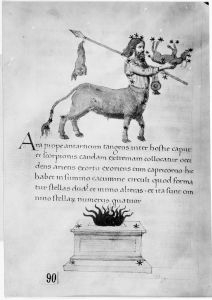 Ara prope antarticum tangens inter hostiae caput
et scorpionis caudam extremam collocatur occi
dens ariens exortu exoriens cum capricorno ha
bet in summo cacumine circuli quod forma
tur stellas duas et in imo alteras et ita sunt om
nino stellae numerus quattuor
90